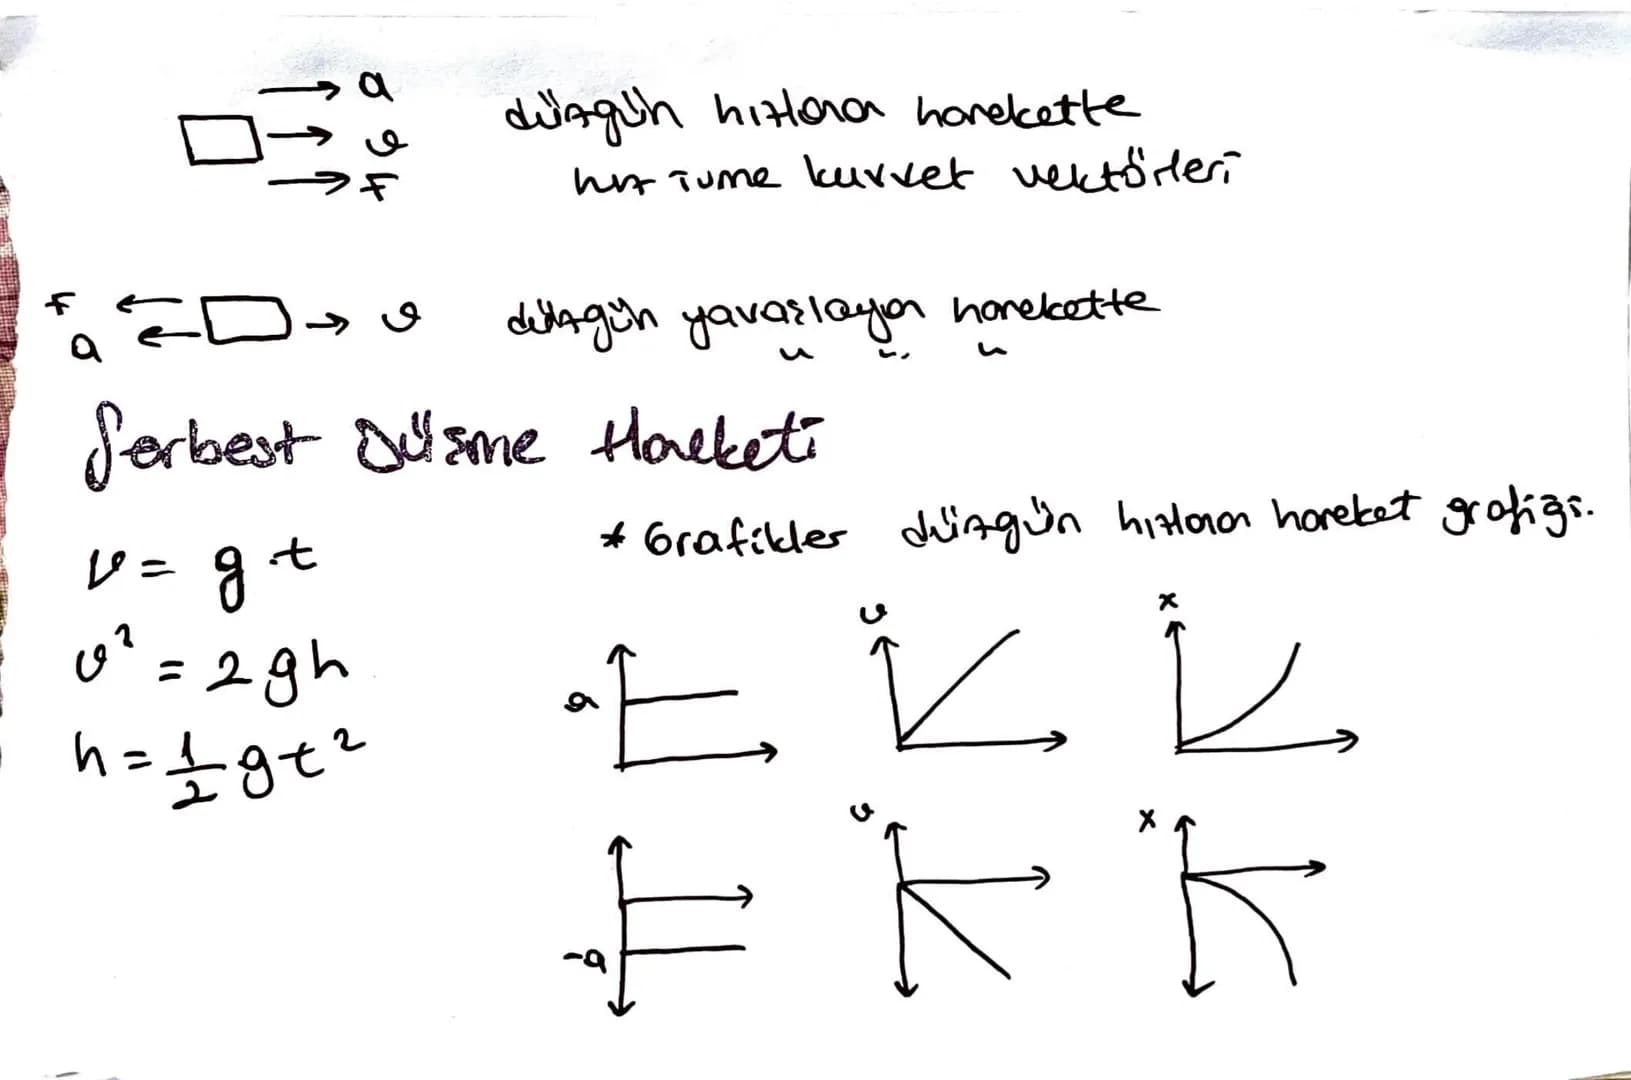 a
v
F
düzgün hızlanan harekette
hız ivme kuvvet vektörleri
F
a
v
düzgün yavaşlayan harekette
" " "
Serbest Düşme Hareketi
v = g.t
* Grafikler düzgün hızlanan hareket grafiği.
v² = 2gh
h = 1/2 gt²
a
v
x
-a
v
x